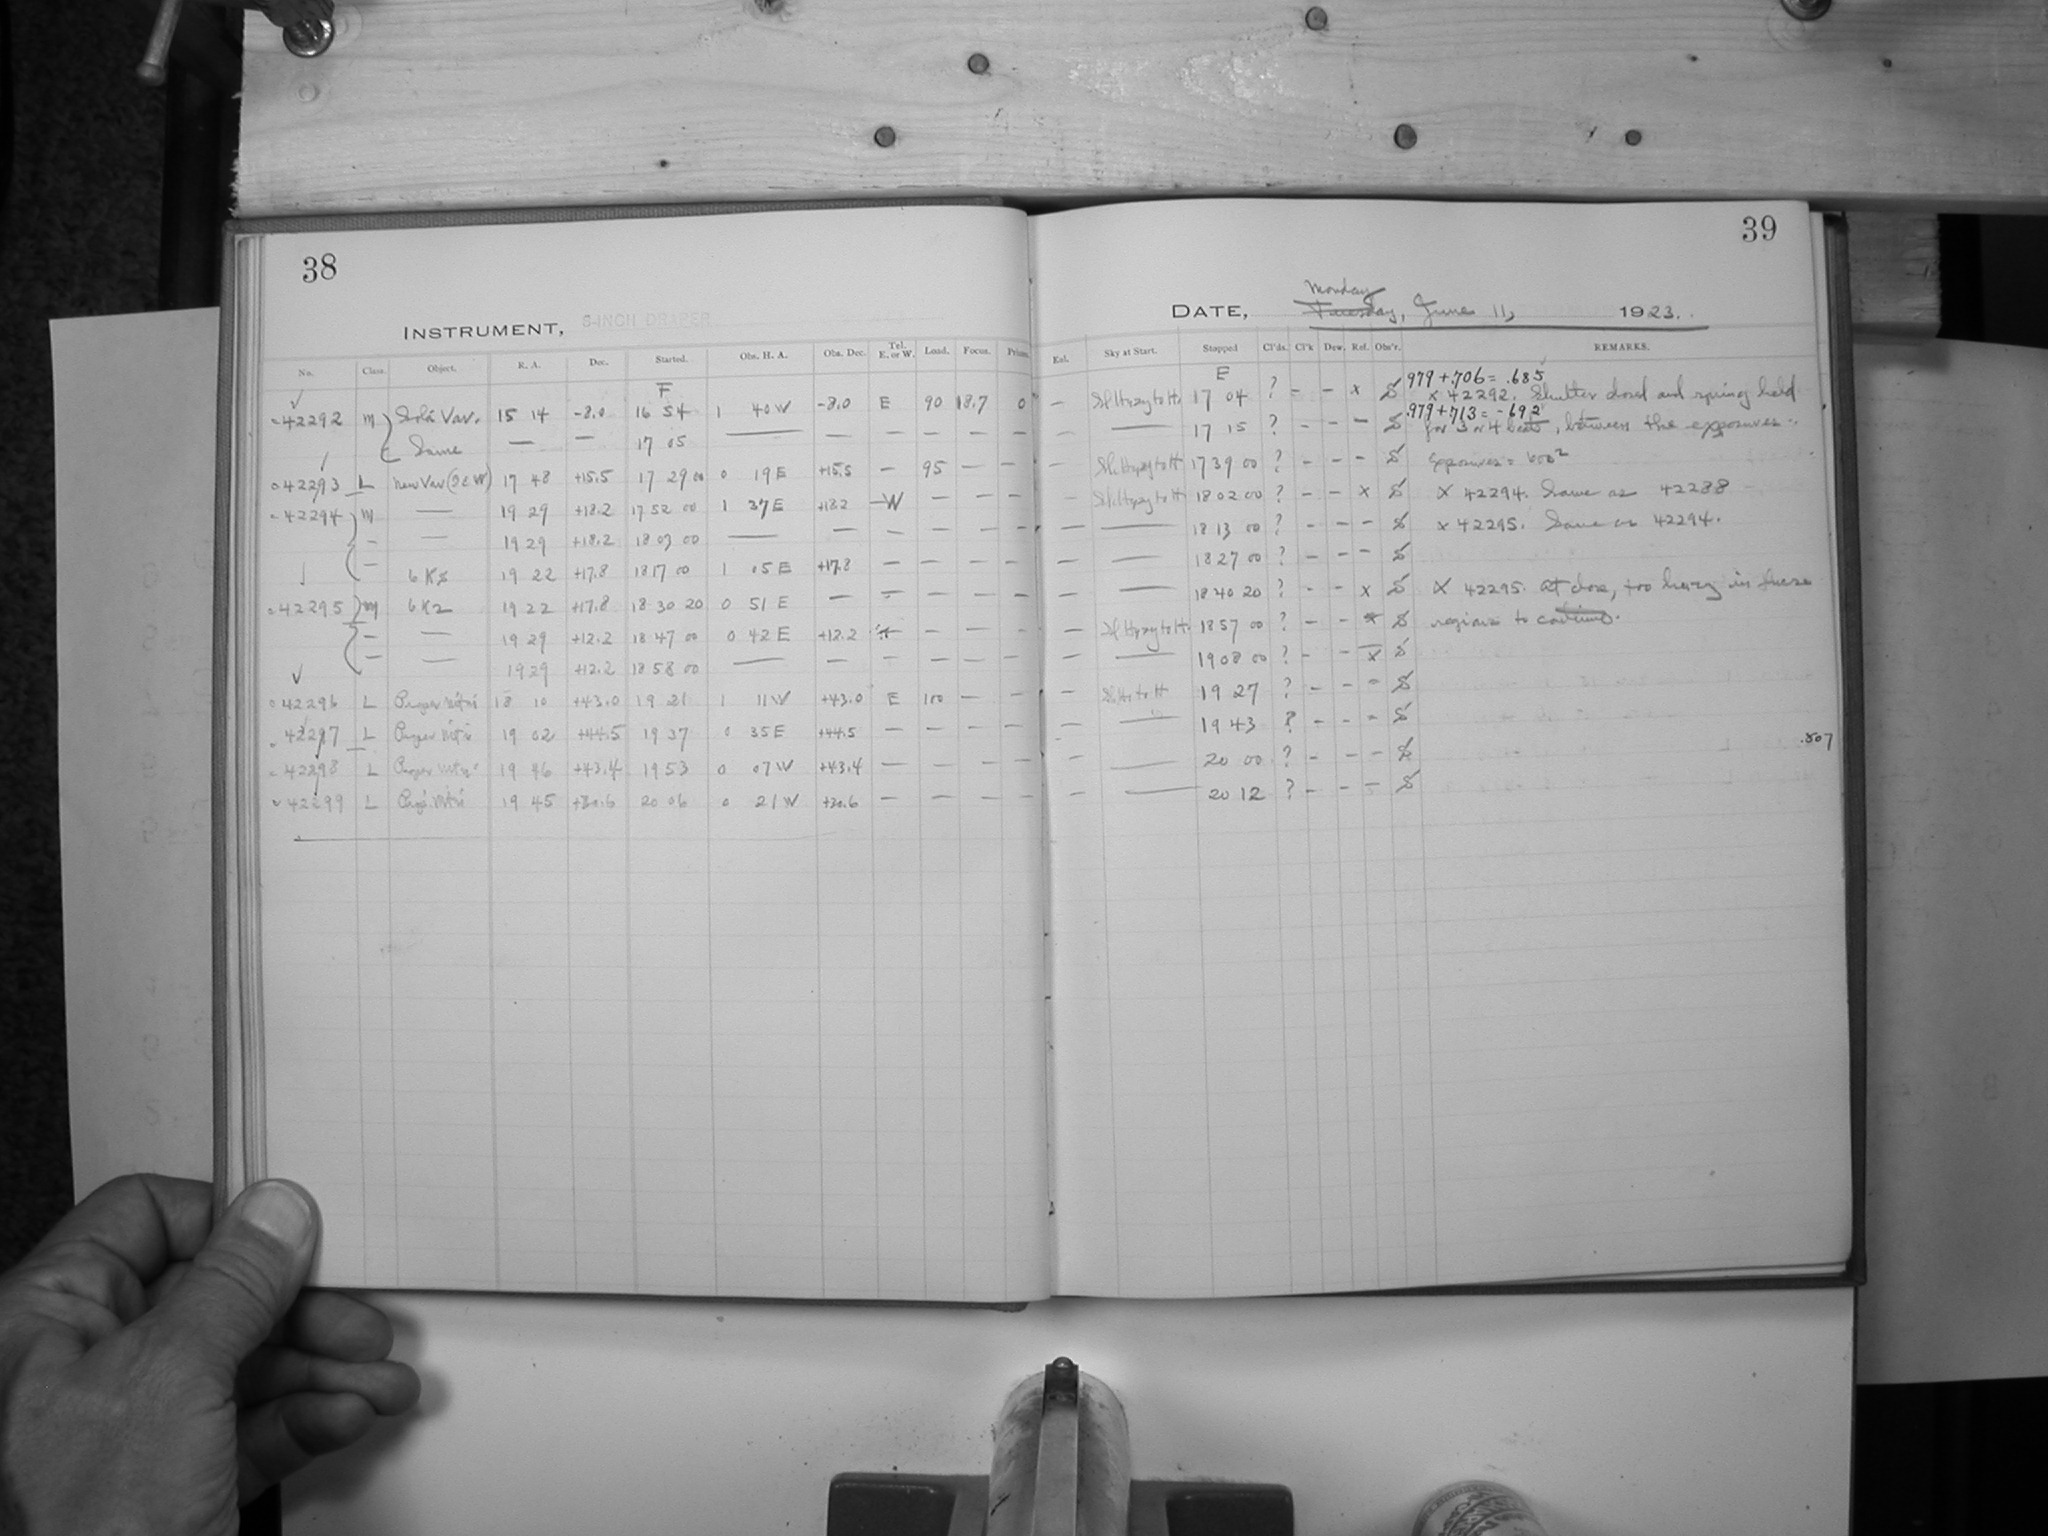 38
INSTRUMENT, 8-INCH DRAPER
No. Class. Object. R. A. Dec. Started. Obs. H. A. Obs. Dec. Tel. E. or W. Load. Focus.
F
42292 M Var. 15 14 -8.0 16 54 1 40 W -8.0 E 90 18.7 0
Same — — 17 05 — — — — — —
42293 L New Var 17 48 +15.5 17 29 00 0 19 E +15.5 — 95 — —
42294 M — 19 29 +18.2 17 52 00 1 37 E +18.2 W — — —
— — 19 29 +18.2 18 03 00 — — — — — —
— 6 K2 19 22 +17.8 18 17 00 1 05 E +17.8 — — — —
42295 M 6 K2 19 22 +17.8 18 30 20 0 51 E — — — — —
— — 19 29 +12.2 18 47 00 0 42 E +12.2 — — —
— — 19 29 +12.2 18 58 00 — — — — — —
42296 L 18 10 +43.0 19 21 1 11 W +43.0 E 100 — —
42297 L 19 02 +44.5 19 37 0 35 E +44.5 — — — —
42298 L 19 46 +43.4 19 53 0 07 W +43.4 — — — —
42299 L 19 45 20 06 0 21 W — — — —
39
Monday
DATE, Tuesday, June 11, 1923.
Exl. Sky at Start. Stopped Cl'ds. Cl'k Dew. Ref. Obs'r. REMARKS.
E
.979 + .706 = .685
— 17 04 ? – – x x 42292. Shutter closed and spring held
.979 + .713 = -.692
— — 17 15 ? – – – for 3 or 4 beats, between the exposures.
— 17 39 00 ? – – – Exposures =
— 18 02 00 ? – – x x 42294. Same as 42288
— — 18 13 00 ? – – – x 42295. Same as 42294.
— — 18 27 00 ? – – –
— — 18 40 20 ? – – x x 42295. At close, too hazy in these
— 18 57 00 ? – – regions to continue.
— — 19 08 00 ? – – x
— 19 27 ? – – –
— — 19 43 ? – – –
.807
— — 20 00 ? – – –
— — 20 12 ? – – –